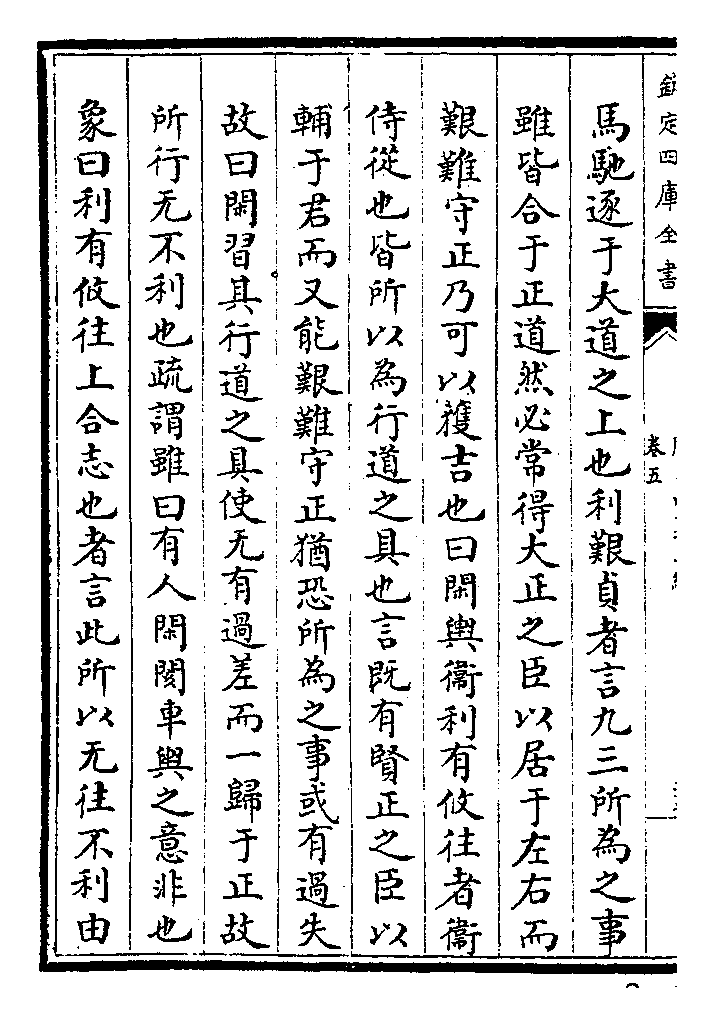 欽定四庫全書
卷五
馬馳逐于大道之上也利艱貞者言九三所為之事
雖皆合于正道然必常得大正之臣以居于左右而
艱難守正乃可以獲吉也曰閑輿衞利有攸往者衞
侍從也皆所以為行道之具也言既有賢正之臣以
輔于君而又能艱難守正猶恐所為之事或有過失
故曰閑習其行道之具使无有過差而一歸于正故
所行无不利也疏謂雖曰有人閑閡車輿之意非也
象曰利有攸往上合志也者言此所以无往不利由